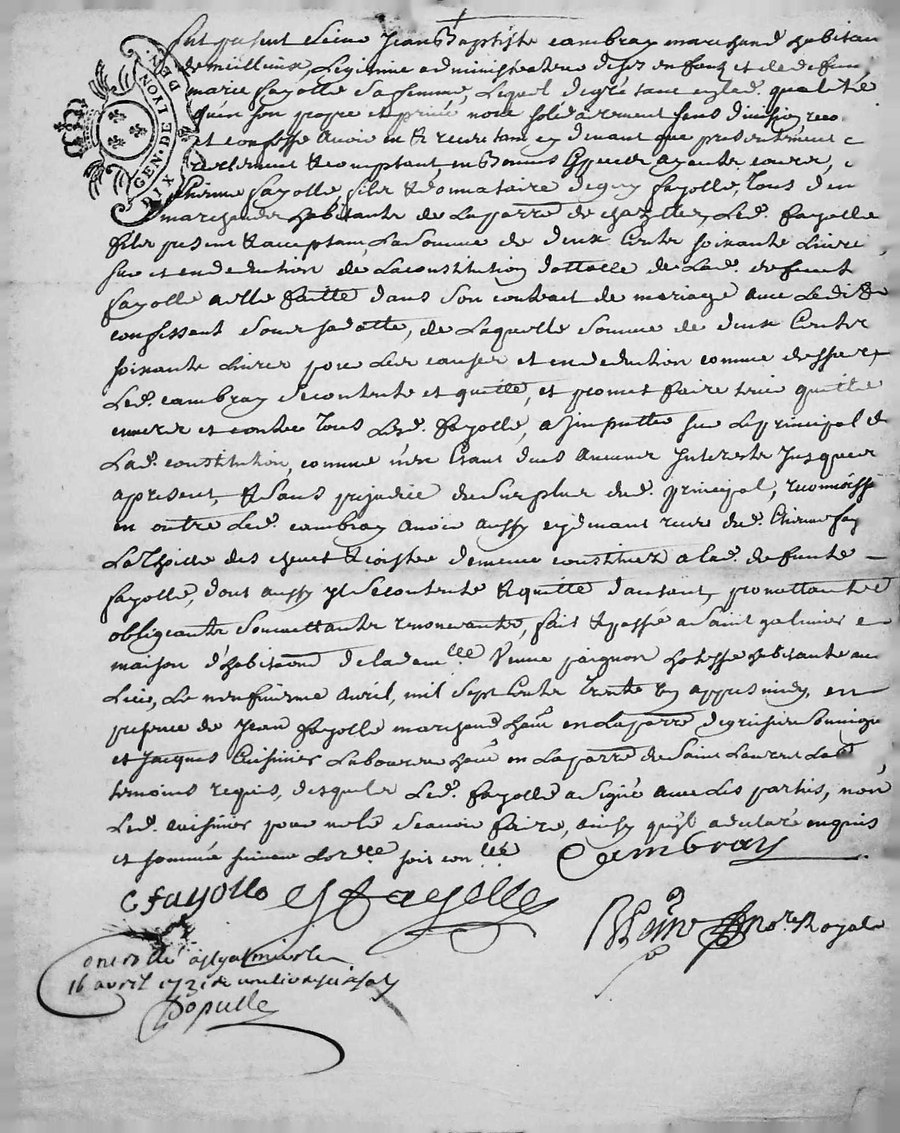 GEN. DE LYON
DIX DEN.
fut present Sieur Jean Baptiste cambray marchand habitan
de meillieux, Legitime administrateur de ses enfants et de deffun
marie fayolle sa femme, Lequel de gré tant esd. qualité
qu'en son propre et privé nom solidairement sans division reco
et confesse avoir eu & receu tant cy devant que presentement
reellement & comptant, en Bonnes Especes ayants cours,
Ethienne fayolle fils & donnataire de guy fayolle, Tous deux
marchands habitants de La parre de chazelles, Led. fayolle
fils present & acceptant, La somme de deux Cents soixante Livres
sur et en deduction de La constitution dottalle de Lad. deffunte
fayolle a elle faitte dans son contrait de mariage avec Ledit
confessent sous sa dotte, de Laquelle somme de deux Cents
soixante Livres pour Les causes et en deduction comme dessus
Led. cambray se contente et quitte, et promet faire tenir quitte
envers et contre Tous Led. fayolle, a imputter sur Le principal de
Lad. constitution, comme n'en Etant deus aucuns Interests Jusques
a present, & sans prejudice du surplus dud. principal, reconnoiss
en outre Led. cambray avoir aussy cy devant receu dud. Ethienne fay
La des & de meme constitués a lad. deffunte
fayolle, dont aussy yl se contente & quitte d'autant, promettants
obligeants soumettants renonceants, fait & passé a Saint galmier en
maison d'habitaon de la demlle Veuve paignon hotesse habitante au
Lieu, Le neufvieme avril, mil sept Cents Trente un appres midy, en
presence de Jean fayolle marchand habt en La parre de grisieu
et Jacques Cuisinier Laboureur habt en La parre de Saint Laurent
temoins requis, desquels Led. fayolle a signé avec Les parties, non
Led. cuisinier pour ne le sçavoir faire, ainsy qu'yl a declaré enquis
et sommé suivant L'ordce soit conllé Cambray
C fayolle E fayolle
nore Royal
Controllé a St galmier le
16 avril 1731
Populle